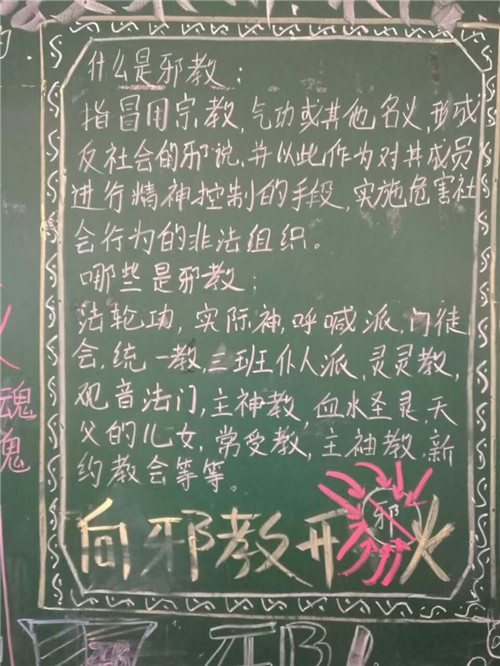 什么是邪教：
指冒用宗教,气功或其他名义,形成
反社会的邪说,并以此作为对其成员
进行精神控制的手段,实施危害社
会行为的非法组织。
哪些是邪教；
法轮功,实际神,呼喊派,门徒
会,统一教,三班仆人派,灵灵教,
观音法门,主神教,血水圣灵,天
父的儿女,常受教,主袖教,新
约教会等等。
向邪教开火
邪
魂
魂